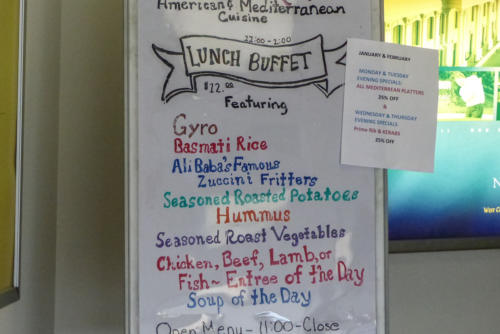 American & Mediterranean
Cuisine
11:00-2:00
LUNCH BUFFET
$12.00
Featuring
Gyro
Basmati Rice
Ali Baba's Famous
Zuccini Fritters
Seasoned Roasted Potatoes
Hummus
Seasoned Roast Vegetables
Chicken, Beef, Lamb, or
Fish~ Entree of the Day
Soup of the Day
Open Menu - 11:00-Close
JANUARY & FEBRUARY
MONDAY & TUESDAY
EVENING SPECIALS:
ALL MEDITERREAN PLATTERS
25% OFF
&
WEDNESDAY & THURSDAY
EVENING SPECIALS
Prime Rib & KEBABS
25% OFF